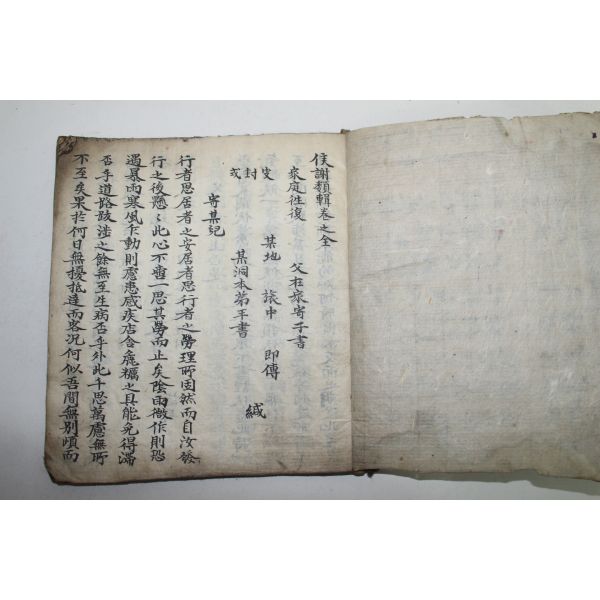 候謝類輯卷之全
家庭往復 父在家寄子書
某地 旅中 即傳
或封 某洞本第平書 緘
寄某記
行者思居者之安居者思行者之勞理所固然而自汝發
行之後懸〻此心不啻一思其勞而止矣陰雨微作則恐
遇暴雨寒風乍動則慮患感疾店舍麁糲之具能免得滿
否乎道路跋涉之餘無至生病否乎外此千思萬慮無所
不至矣果於何日無擾抵達而客況何似吾間無別頃而